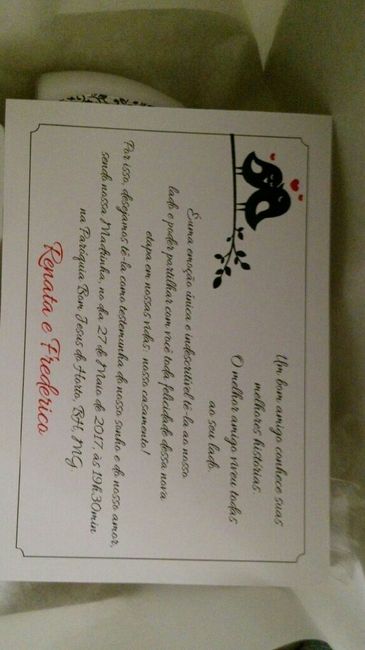 Um bom amigo conhece suas
melhores histórias
O melhor amigo viveu todas
ao seu lado.
É uma emoção única e indescritível tê-la ao nosso
lado e poder partilhar com você toda felicidade dessa nova
etapa em nossas vidas: nosso casamento!
Por isso, desejamos tê-la como testemunha do nosso sonho e do nosso amor,
sendo nossa Madrinha, no dia 27 de Maio de 2017, às 19h30min
na Paróquia Bom Jesus do Horto, BH, MG.
Renata e Frederico